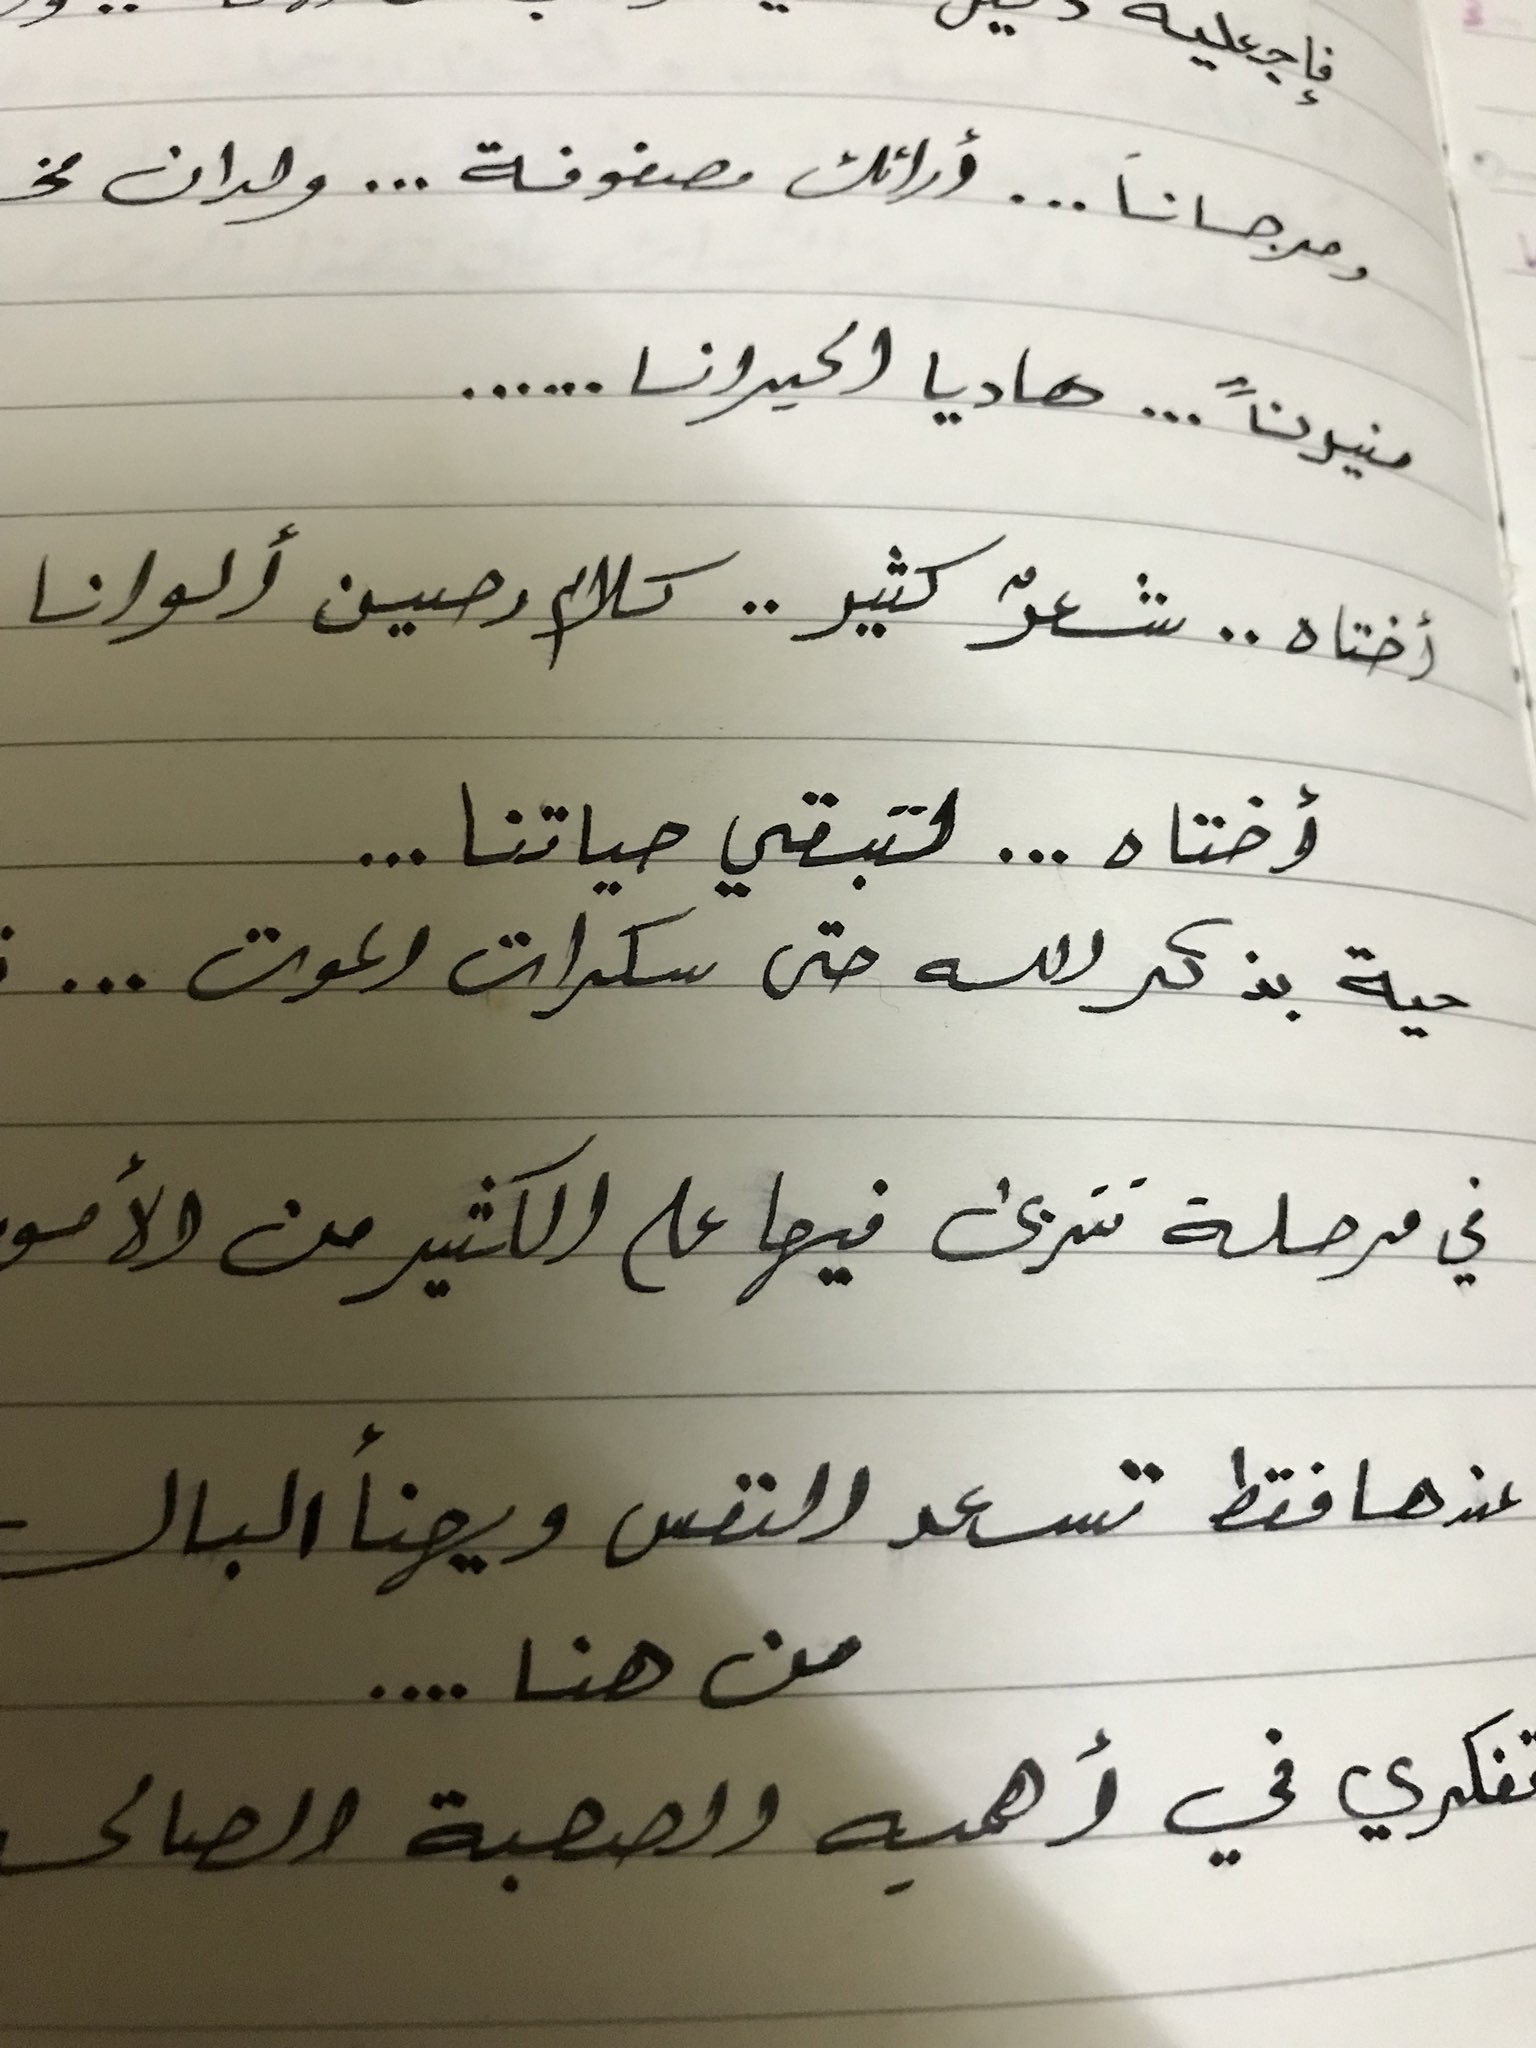 فإجعليه دليل
ومرجاناً ... أرائك مصفوفة ... ولدان مخ
منيوناً ... هاديا الحيرانا ......
أختاه .. شعرٌ كثير .. كلام رصين ألوانا
أختاه ... لتبقي حياتنا ...
حية بذكر الله حتى سكرات الموت ...
في مرحلة تترئ فيها على الكثير من الأمور
عندها فقط تسعد النفس ويهنأ البال
من هنا ....
تفكري في أهميه الصحبة الصالحـ